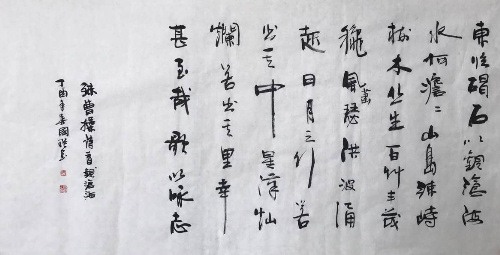 東臨碣石以觀滄海
水何澹〻山島竦峙
樹木丛生百艸丰茂
秋風蕭瑟洪波涌
起日月之行若
出其中星漢灿
爛若出其里幸
甚至哉歌以咏志
曹操詩首觀滄海
丁酉年國